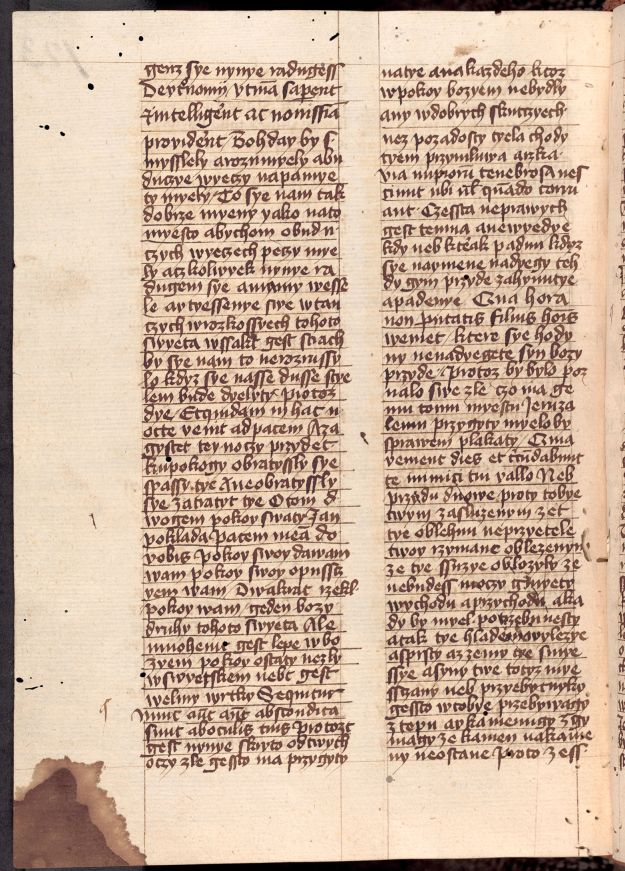 genz sye nynye radugess
Deutnomy vtina sapent
Intelligent ac nouissia
prouident Bohday by s
mysslely arozumyely abu
duczye wyeczy napamye
ty myely To sye nam tak
dobrze myeny yako nato
myesto abychom obud n
czych wyeczech peczy mye
ly aczkoliwek nynye ra
dugem sye amamy wesse
le ay tyessenye swe wtan
czych wrozkossyech tohoto
swyeta wssak gest strach
by sye nam to nerozmssy
lo kdyz sye nasse dusse stye
lem bude dyelyty Protoz
dye Etquidam in hac n
octe venit ad pacem Aza
gystet tey noczy przydet
kupokogy obratyssly sye
spassy tye Aneobratyssly
sye zatratyt tye Otom d
wogem pokoy swaty Jan
poklada Pacem mea do
vobis Pokoy swoy dawam
wam pokoy swoy opussty
yem wam Dwakrat rzekl
pokoy wam geden bozy
druhy tohoto swyeta Ale
mnohemt gest lepe wbo
zyem pokoy ostaty nezly
wswyetskem nebt gest
welmy wrtky Sequitur
nunc aut abscondita
sunt aboculis tuis Protozt
gest nynye skryto odtwych
oczy zle gessto ma przygyty
natye anakazdeho ktoz
wpokoy bozyem nebydly
any wdobrych skutczyech
nez pozadosty tyela chody
tyem przmluwa arzka
Via impioru tenebrosa nes
ciunt ubi
Czessta neprawych
gest temna anewyedye
kdy neb kteak padnu kdyz
sye naymene nadyegy teh
dy gym przyde zahynutye
apadenye Qua hora
non putatis filius hois
weniet ktere sye hody
ny nenadyegete syn bozy
przyde Protoz by bylo poz
nalo swe zle czo ma ge
mu tomu myestu Jeruza
lemu przygyty myelo by
sprawem plakaty Quia
venient dies et cicudabunt
te inimici tui vallo Neb
przydu dnowe proty tobye
twym zasluzenym zet
tye oblehnu neprzyetele
twoy rzymane oblezenym
ze tye sskuzye oblozyly ze
nebudess moczy gmyety
wychodu aprzychodu aka
dy by myel potrzebu nesty
atak tye hladem
aspusty az zemy tye smye
ssye asyny twe totyz mye
ssczany neb przyebytniky
gessto wtobye przebywagy
ztepu ay kamenugy zgy
magy ze kamen nakame
ny neostane Proto zess